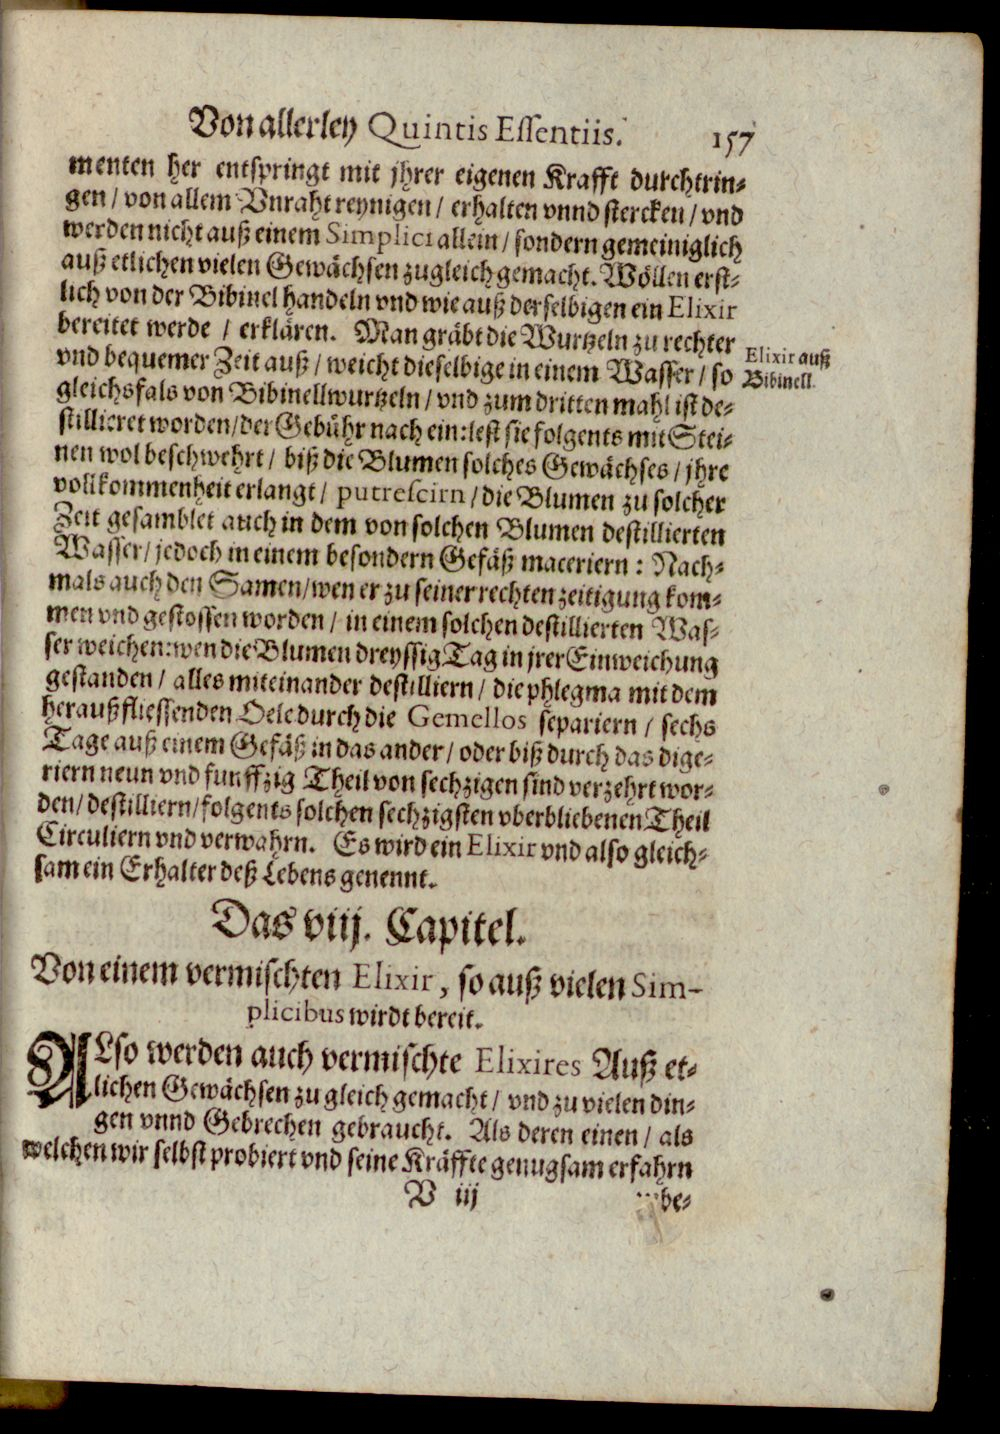 Von allerley Quintis Essentiis. 157
menten her entspringt mit jhrer eigenen Krafft durchtrin-
gen / von allem Vnraht reynigen / erhalten vnnd stercken / vnd
werden nicht auß einem Simplici allein / sondern gemeiniglich
auß etlichen vielen Gewächsen zugleich gemacht. Wöllen erst-
lich von der Bibinel handeln vnd wie auß derselbigen ein Elixir
bereitet werde / erklären. Man gräbt die Wurtzeln zu rechter
vnd bequemer Zeit auß / weicht dieselbige in einem Wasser / so
Elixir auß
Bibinell.
gleichsfals von Bibinellwurtzeln / vnd zum dritten mahl ist de-
stillieret worden / der Gebühr nach ein: lest sie folgents mit Stei-
nen wol beschwehrt / biß die Blumen solches Gewächses / jhre
vollkommenheit erlangt / putrescirn / die Blumen zu solcher
Zeit gesamblet auch in dem von solchen Blumen destillierten
Wasser / jedoch in einem besondern Gefäß maceriern : Nach-
mals auch den Samen / wen er zu seiner rechten zeitigung kom-
men vnd gestossen worden / in einem solchen destillierten Was-
ser weichen: wen die Blumen dreyssig Tag in jrer Einweichung
gestanden / alles miteinander destilliern / die phlegma mit dem
heraußfliessenden Oele durch die Gemellos separiern / sechs
Tage auß einem Gefäß in das ander / oder biß durch das dige-
riern neun vnd funffzig Theil von sechzigen sind verzehrt wor-
den / destilliern / folgents solchen sechzigsten vberbliebenen Theil
Circuliern vnd verwahrn. Es wird ein Elixir vnd also gleich-
sam ein Erhalter deß Lebens genennt.
Das viij. Capitel.
Von einem vermischten Elixir, so auß vielen Sim-
plicibus wirdt bereit.
ALso werden auch vermischte Elixires Auß et-
lichen Gewächsen zu gleich gemacht / vnd zu vielen din-
gen vnnd Gebrechen gebraucht. Als deren einen / als
welchen wir selbst probiert vnd seine Kräffte genugsam erfahrn
V iij be-